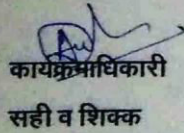 कार्यक्रमाधिकारी
सही व शिक्क